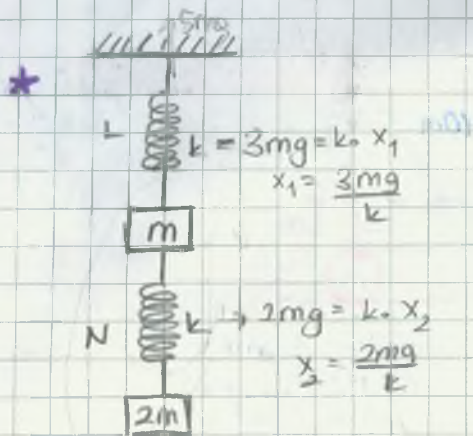 L k = 3mg = k. x₁
x₁ = 3mg/k
m
N k → 2mg = k. x₂
x₂ = 2mg/k
2m